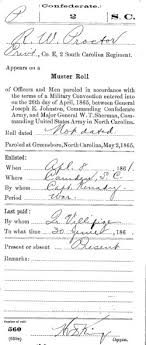 (Confederate.)
P 2 S.C.
R. W. Proctor
Privt, Co. E, 2 South Carolina Regiment.
Appears on a
Muster Roll
of Officers and Men paroled in accordance
with the terms of a Military Convention entered
into on the 26th day of April, 1865, between General
Joseph E. Johnston, Commanding Confederate
Army, and Major General W. T. Sherman, Com-
manding United States Army in North Carolina.
Roll dated Not dated
Paroled at Greensboro, North Carolina, May 2, 1865.
Enlisted:
When Apl. 8, 1861.
Where Camden, S.C.
By Capt. Kennedy
Period War
Last paid:
By
To what time 30 June, 186
Present or absent Present
Remarks:
Number of roll:
560
(639c) Copyist.